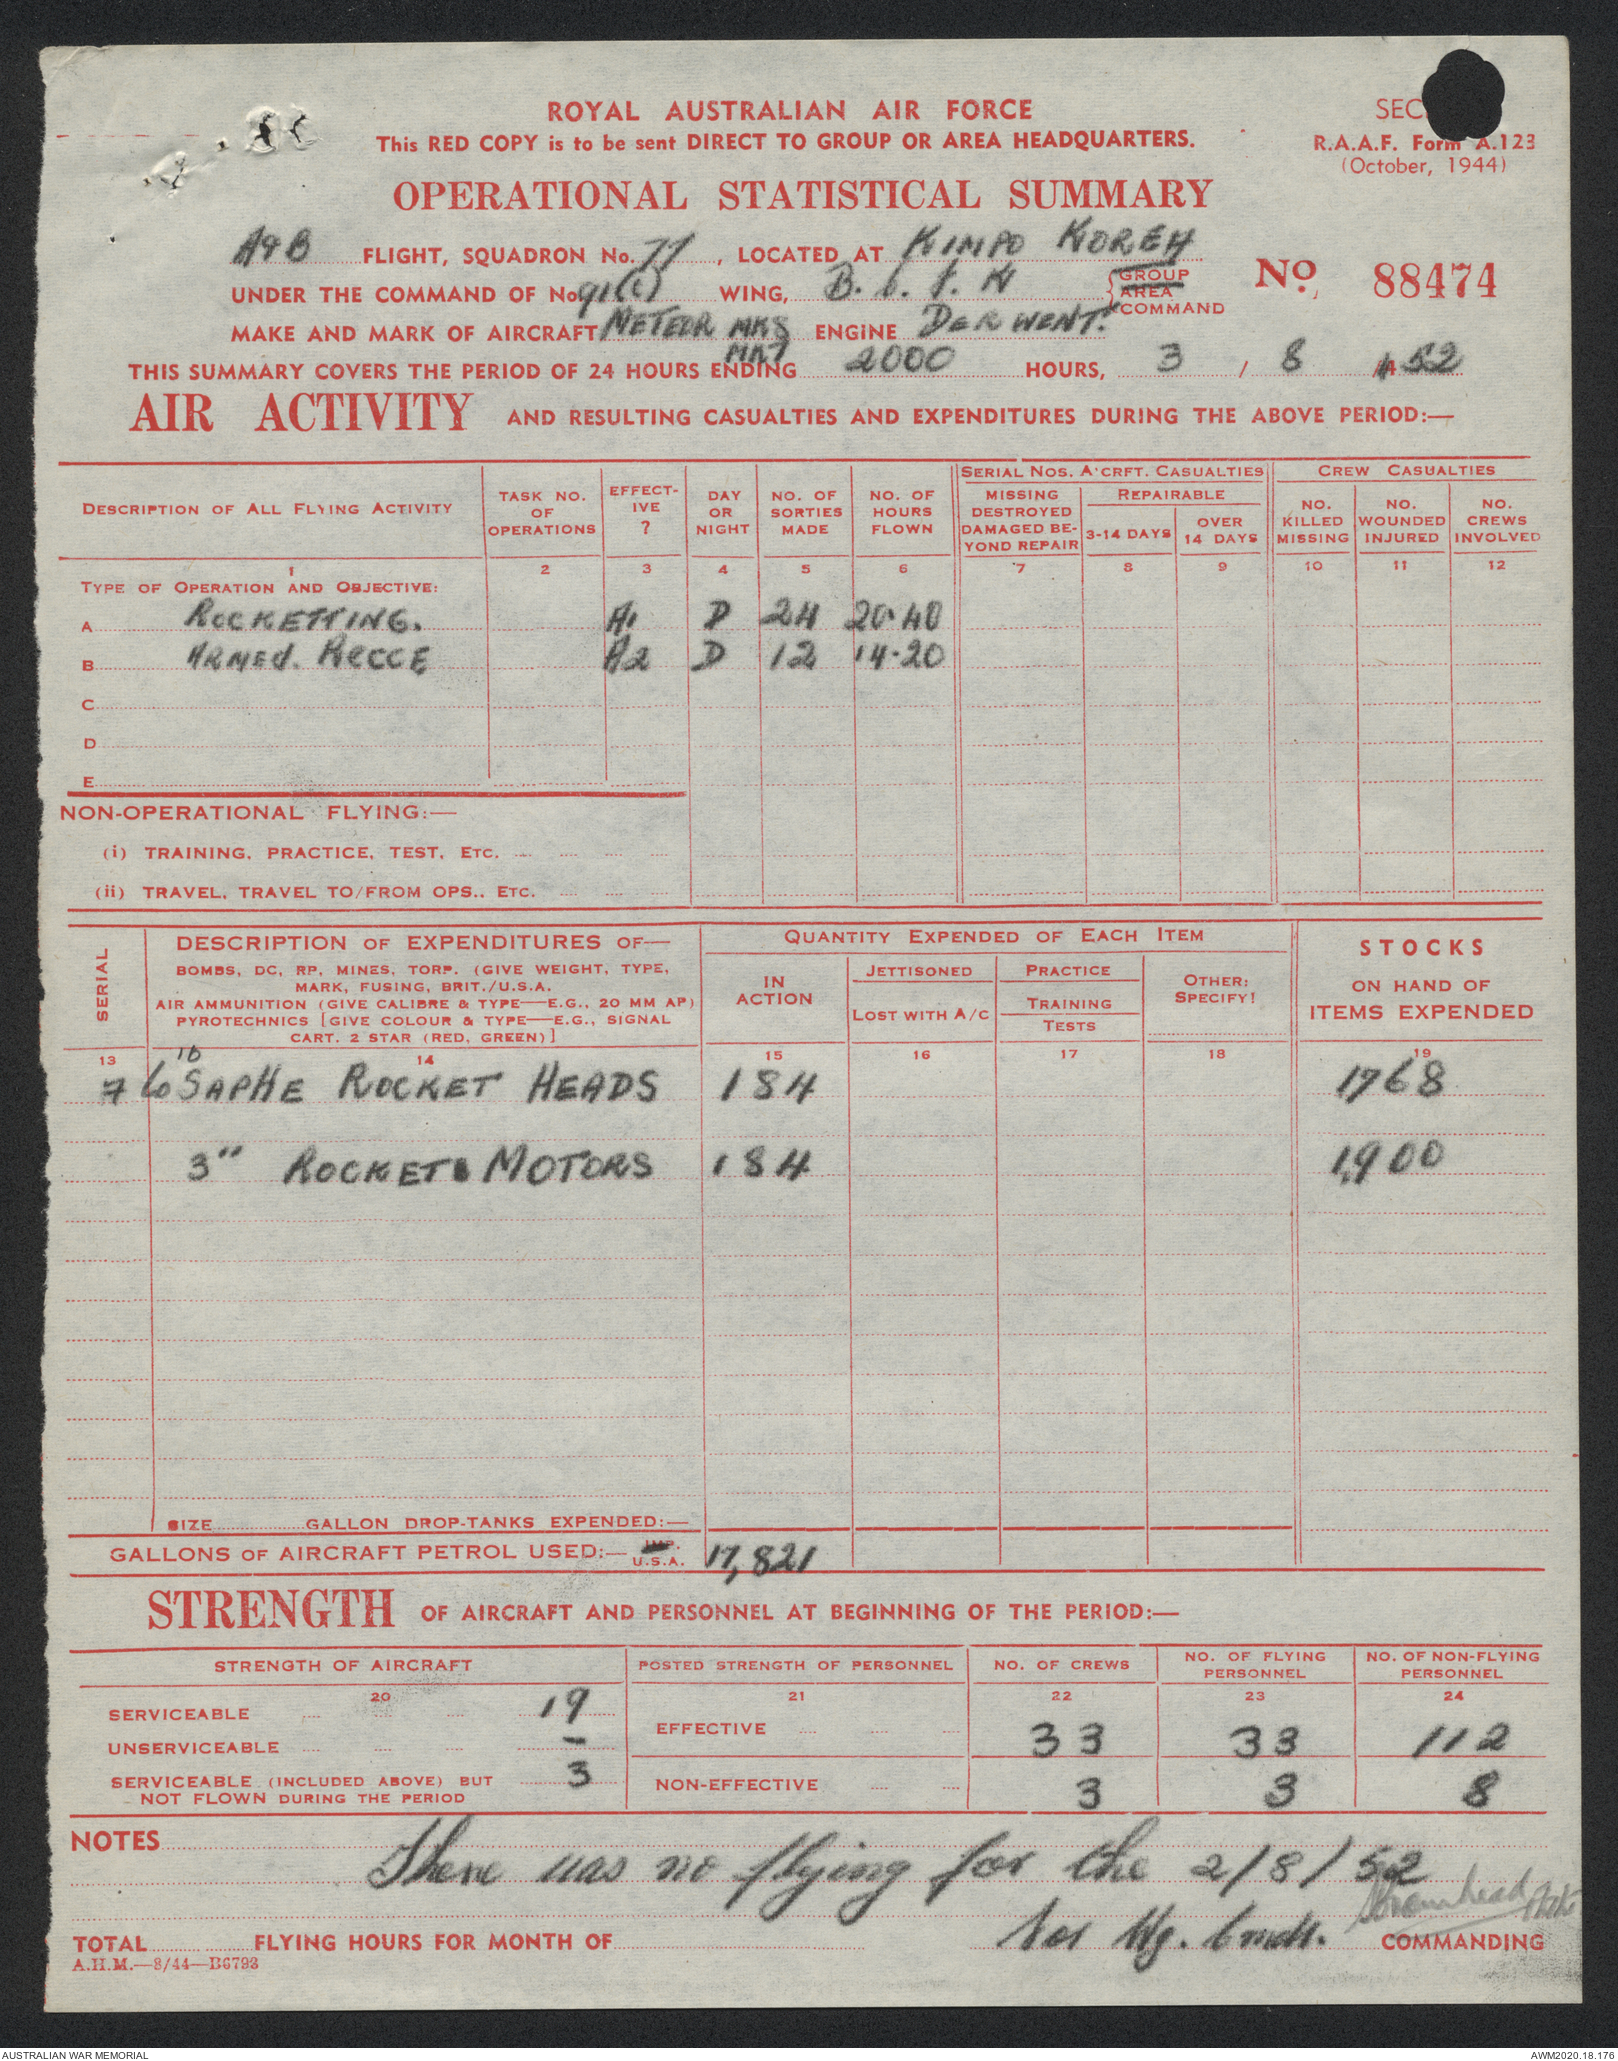 ROYAL AUSTRALIAN AIR FORCE
This RED COPY is to be sent DIRECT TO GROUP OR AREA HEADQUARTERS.
SEC
R.A.A.F. Form A.123
(October, 1944)
OPERATIONAL STATISTICAL SUMMARY
A & B FLIGHT, SQUADRON No. 77, LOCATED AT KIMPO KOREA
UNDER THE COMMAND OF No 91(C) WING, B.C.F.K GROUP AREA COMMAND
No. 88474
MAKE AND MARK OF AIRCRAFT METEOR MK8 ENGINE DERWENT.
MK7
THIS SUMMARY COVERS THE PERIOD OF 24 HOURS ENDING 2000 HOURS, 3 / 8 / 52
AIR ACTIVITY AND RESULTING CASUALTIES AND EXPENDITURES DURING THE ABOVE PERIOD:—
DESCRIPTION OF ALL FLYING ACTIVITY
TASK NO. OF OPERATIONS
EFFECTIVE ?
DAY OR NIGHT
NO. OF SORTIES MADE
NO. OF HOURS FLOWN
SERIAL NOS. A'CRFT. CASUALTIES
MISSING DESTROYED DAMAGED BEYOND REPAIR
REPAIRABLE
3-14 DAYS
OVER 14 DAYS
CREW CASUALTIES
NO. KILLED MISSING
NO. WOUNDED INJURED
NO. CREWS INVOLVED
1 2 3 4 5 6 7 8 9 10 11 12
TYPE OF OPERATION AND OBJECTIVE:
A ROCKETTING. A1 D 24 20.40
B ARMED. RECCE A2 D 12 14.20
C
D
E
NON-OPERATIONAL FLYING:—
(i) TRAINING, PRACTICE, TEST, ETC.
(ii) TRAVEL, TRAVEL TO/FROM OPS., ETC.
SERIAL
DESCRIPTION OF EXPENDITURES OF—
BOMBS, DC, RP, MINES, TORP. (GIVE WEIGHT, TYPE,
MARK, FUSING, BRIT./U.S.A.
AIR AMMUNITION (GIVE CALIBRE & TYPE—E.G., 20 MM AP)
PYROTECHNICS [GIVE COLOUR & TYPE—E.G., SIGNAL
CART. 2 STAR (RED, GREEN)]
QUANTITY EXPENDED OF EACH ITEM
IN ACTION
JETTISONED
LOST WITH A/C
PRACTICE
TRAINING
TESTS
OTHER:
SPECIFY!
STOCKS
ON HAND OF
ITEMS EXPENDED
13 14 15 16 17 18 19
7 60 lb SAPHE ROCKET HEADS 184 1768
3" ROCKET MOTORS 184 1,900
SIZE GALLON DROP-TANKS EXPENDED:—
GALLONS OF AIRCRAFT PETROL USED:— IMP. U.S.A. 17,821
STRENGTH OF AIRCRAFT AND PERSONNEL AT BEGINNING OF THE PERIOD:—
STRENGTH OF AIRCRAFT
POSTED STRENGTH OF PERSONNEL
NO. OF CREWS
NO. OF FLYING PERSONNEL
NO. OF NON-FLYING PERSONNEL
20 21 22 23 24
SERVICEABLE 19
UNSERVICEABLE -
SERVICEABLE (INCLUDED ABOVE) BUT NOT FLOWN DURING THE PERIOD 3
EFFECTIVE 33 33 112
NON-EFFECTIVE 3 3 8
NOTES
There was no flying for the 2/8/52
for Wg. Cmdr. COMMANDING
TOTAL FLYING HOURS FOR MONTH OF
A.H.M.—8/44—B6793
AUSTRALIAN WAR MEMORIAL
AWM2020.18.176